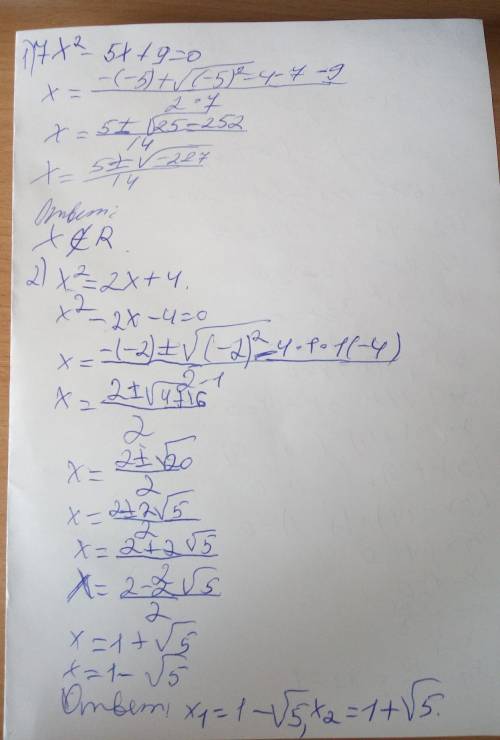 1) 7x² - 5x + 9 = 0
x = -(-5) + √(-5)² - 4 - 7 - 9 / 2 · 7
x = 5 ± √25 - 252 / 14
x = 5 ± √-227 / 14
Ответ:
x ∉ R.
2) x² = 2x + 4.
x² - 2x - 4 = 0
x = -(-2) ± √(-2)² - 4 · 1 · 1(-4) / 2 - 1
x = 2 ± √4 + 16 / 2
x = 2 ± √20 / 2
x = 2 ± 2√5 / 2
x = 2 + 2√5 / 2
x = 2 - 2√5 / 2
x = 1 + √5
x = 1 - √5
Ответ: x₁ = 1 - √5, x₂ = 1 + √5.